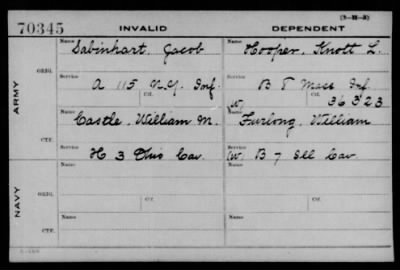 (3-M-A)
70345 INVALID DEPENDENT
Name Name
Sabinhart, Jacob Hooper, Knott L.
ORIG.
Service Service
A 115 N.Y. Inf. Ctf. B 8 Mass Inf. Ctf.
ARMY
(W) 36323
Name Name
Castle, William M. Furlong, William
CTF.
Service Service
H 3 Ohio Cav. (W) B 7 Ill Cav
Name Name
ORIG.
NAVY
Ctf. Ctf.
Name Name
CTF.